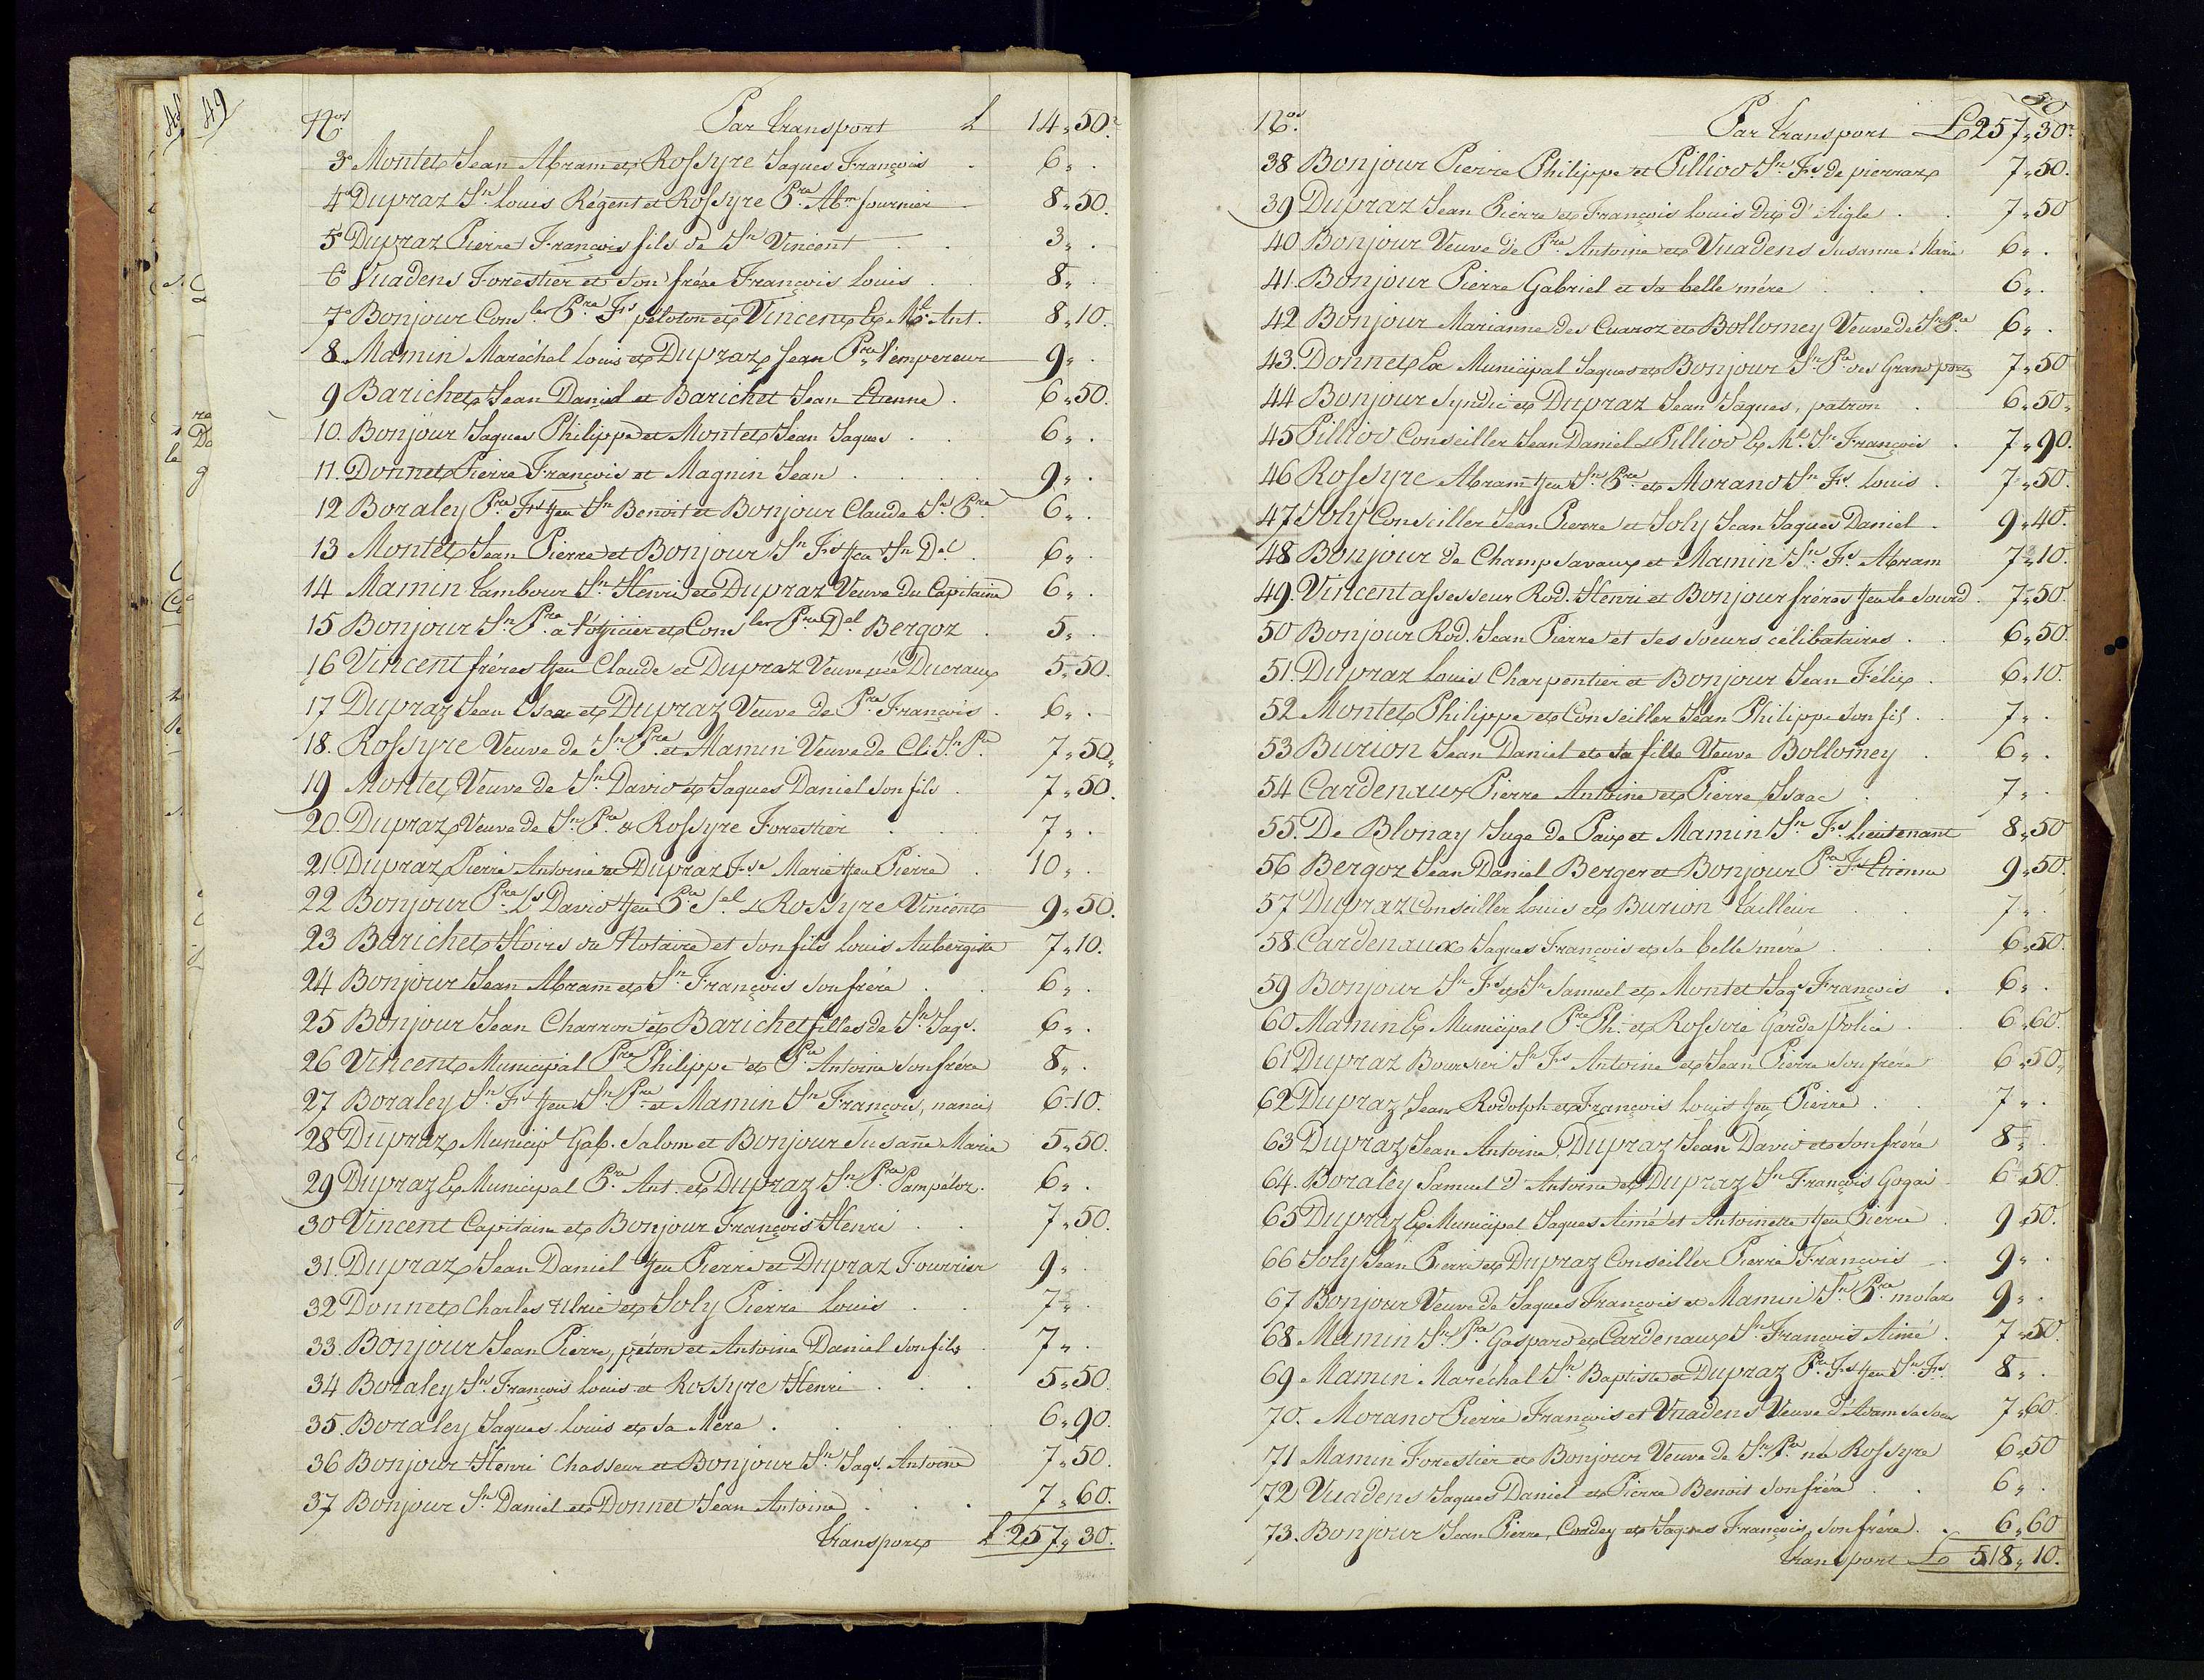 49
Nos Par transport L 14„50.
3° Montet Jean Abram et Rossyre Jaques François . 6„ .
4° Dupraz Jn Louis Régent et Rossyre Pre Abm fournier 8„50.
5° Dupraz Pierre François fils de Jn Vincent . . 3„ .
6° Vuadens Forestier et son frére François Louis . 8„ .
7° Bonjour Consler Pre Fs péloton et Vincent Ex Ml Ant. 8„10.
8 Mamin Maréchal Louis et Dupraz Jean Pre l'empereur 9„ .
9 Barichet Jean Daniel et Barichet Jean Etienne . 6„50.
10. Bonjour Jaques Philippe et Montet Jean Jaques . . 6„ .
11. Donnet Pierre François et Magnin Jean . . . . 9„ .
12 Boraley Pre Fs feu Jn Benoit et Bonjour Claude Jn Pre 6„ .
13 Montet Jean Pierre et Bonjour Jn Fs feu Jn Del . 6„ .
14 Mamin tambour Jn Henri et Dupraz Veuve du Capitaine 6„ .
15 Bonjour Jn Pre a l'officier et Consler Pre Del Bergoz . 5„ .
16 Vincent fréres feu Claude et Dupraz Veuve née Ducraux 5„50.
17 Dupraz Jean Isaac et Dupraz Veuve de Pre François . 6„ .
18. Rossyre Veuve de Jn Pre et Mamin Veuve de Cl. Jn Pre 7„50„
19 Montet Veuve de Jn David et Jaques Daniel son fils . 7„50.
20. Dupraz Veuve de Jn Pre & Rossyre Forestier . . . 7„ .
21 Dupraz Pierre Antoine et Dupraz Fse Marie feu Pierre . 10„ .
22 Bonjour Pre Ls David feu Pre Sel & Rossyre Vincent 9„50.
23 Barichet Hoirs du Notaire et son fils Louis Aubergiste 7„10.
24 Bonjour Jean Abram et Jn François son frére . . 6„ .
25 Bonjour Jean Charron et Barichet filles de Jn Jaqs. 6„ .
26 Vincent Municipal Pre Philippe et Pre Antoine son frére 8„ .
27 Boraley Jn Fs feu Jn Pre et Mamin Jn François, nanci 6„10.
28 Dupraz Municipl Gab. Salom et Bonjour Susañe Marie 5„50.
29 Dupraz Ex Municipal Pre Ant. et Dupraz Jn Pre Pampéloz. 6„ .
30 Vincent Capitaine et Bonjour François Henri . . 7„50.
31. Dupraz Jean Daniel feu Pierre et Dupraz Fourrier 9„ .
32 Donnet Charles Ulric et Joly Pierre Louis . . 7„ .
33. Bonjour Jean Pierre, péton et Antoine Daniel son fils . 7„ .
34 Boraley Jn François Louis et Rossyre Henri . . . 5„50.
35. Boraley Jaques Louis et sa Mère . . . . 6„90.
36 Bonjour Henri Chasseur et Bonjour Jn Jaqs. Antoine 7„50.
37 Bonjour Jn Daniel et Donnet Jean Antoine . . . 7„60.
transport L 257„30.
50
Nos. Par transport L 257„30.
38 Bonjour Pierre Philippe et Pilliod Jn Fs de pierraz 7„50.
39 Dupraz Jean Pierre et François Louis dit d'Aigle . . 7„50
40 Bonjour Veuve de Pre Antoine et Vuadens Susanne Marie 6„ .
41. Bonjour Pierre Gabriel et sa belle mére . . . 6„ .
42 Bonjour Marianne des Cuaroz et Bollomey Veuve de Jn Pre 6„ .
43. Donnet Ex Municipal Jaques et Bonjour Jn Pre des Grand 7„50
44 Bonjour Syndic et Dupraz Jean Jaques, patron . 6„50„
45 Pilliod Conseiller Jean Daniel & Pilliod Ex Ml Jn François . 7„90.
46 Rossyre Abram feu Jn Pre et Morand Jn Fs Louis . 7„50.
47 Joly Conseiller Jean Pierre et Joly Jean Jaques Daniel . 9„40.
48 Bonjour de Champ Savaux et Mamin Jn Fs Abram 7„10.
49. Vincent assesseur Rod. Henri et Bonjour fréres feu le Sourd 7„50.
50 Bonjour Rod. Jean Pierre et ses soeurs célibataires . . 6„50.
51. Dupraz Louis Charpentier et Bonjour Jean Félix . . 6„10.
52 Montet Philippe et Conseiller Jean Philippe son fils . . 7„ .
53 Burion Jean Daniel et sa fille Veuve Bollomey . 6„ .
54 Cardenaux Pierre Antoine et Pierre Isaac . . 7„ .
55. De Blonay Juge de Paix et Mamin Jn Fs Lieutenant 8„50
56 Bergoz Jean Daniel Berger et Bonjour Pre Fs Etienne 9„50.
57 Dupraz Conseiller Louis et Burion tailleur . . 7„ .
58. Cardenaux Jaques François et sa belle mére . . . 6„50.
59 Bonjour Jn Fs et Jn Samuel et Montet Jaqs François . 6„ .
60 Mamin Ex Municipal Pre Ph. et Rossire Garde Police . 6„60.
61 Dupraz Boursier Jn Fs Antoine et Jean Pierre son frére 6„50„
62 Dupraz Jean Rodolph et François Louis feu Pierre . . 7„ .
63 Dupraz Jean Antoine, Dupraz Jean David et son frére 8„ .
64. Boraley Samuel d'Antoine et Dupraz Jn François Gogai 6„50.
65 Dupraz Ex Municipal Jaques Aimé et Antoinette feu Pierre . 9„50.
66 Joly Jean Pierre et Dupraz Conseiller Pierre François . 9„ .
67 Bonjour Veuve de Jaques François et Mamin Jn Pre molaz 9„ .
68 Mamin Jn Pre Gaspard et Cardenaux Jn François Aimé . 7„50.
69 Mamin Maréchal Jn Baptiste et Dupraz Pre Fs feu Jn Fs. 8„ .
70. Morand Pierre François et Vuadens Veuve d'Adam sa soeur 7„60.
71 Mamin Forestier et Bonjour Veuve de Jn Pre née Rossyre 6„50
72 Vuadens Jaques Daniel et Pierre Benoit son frére . . 6„ .
73. Bonjour Jean Pierre, Cordey et Jaques François son frére. . 6„60
transport L 518„10.